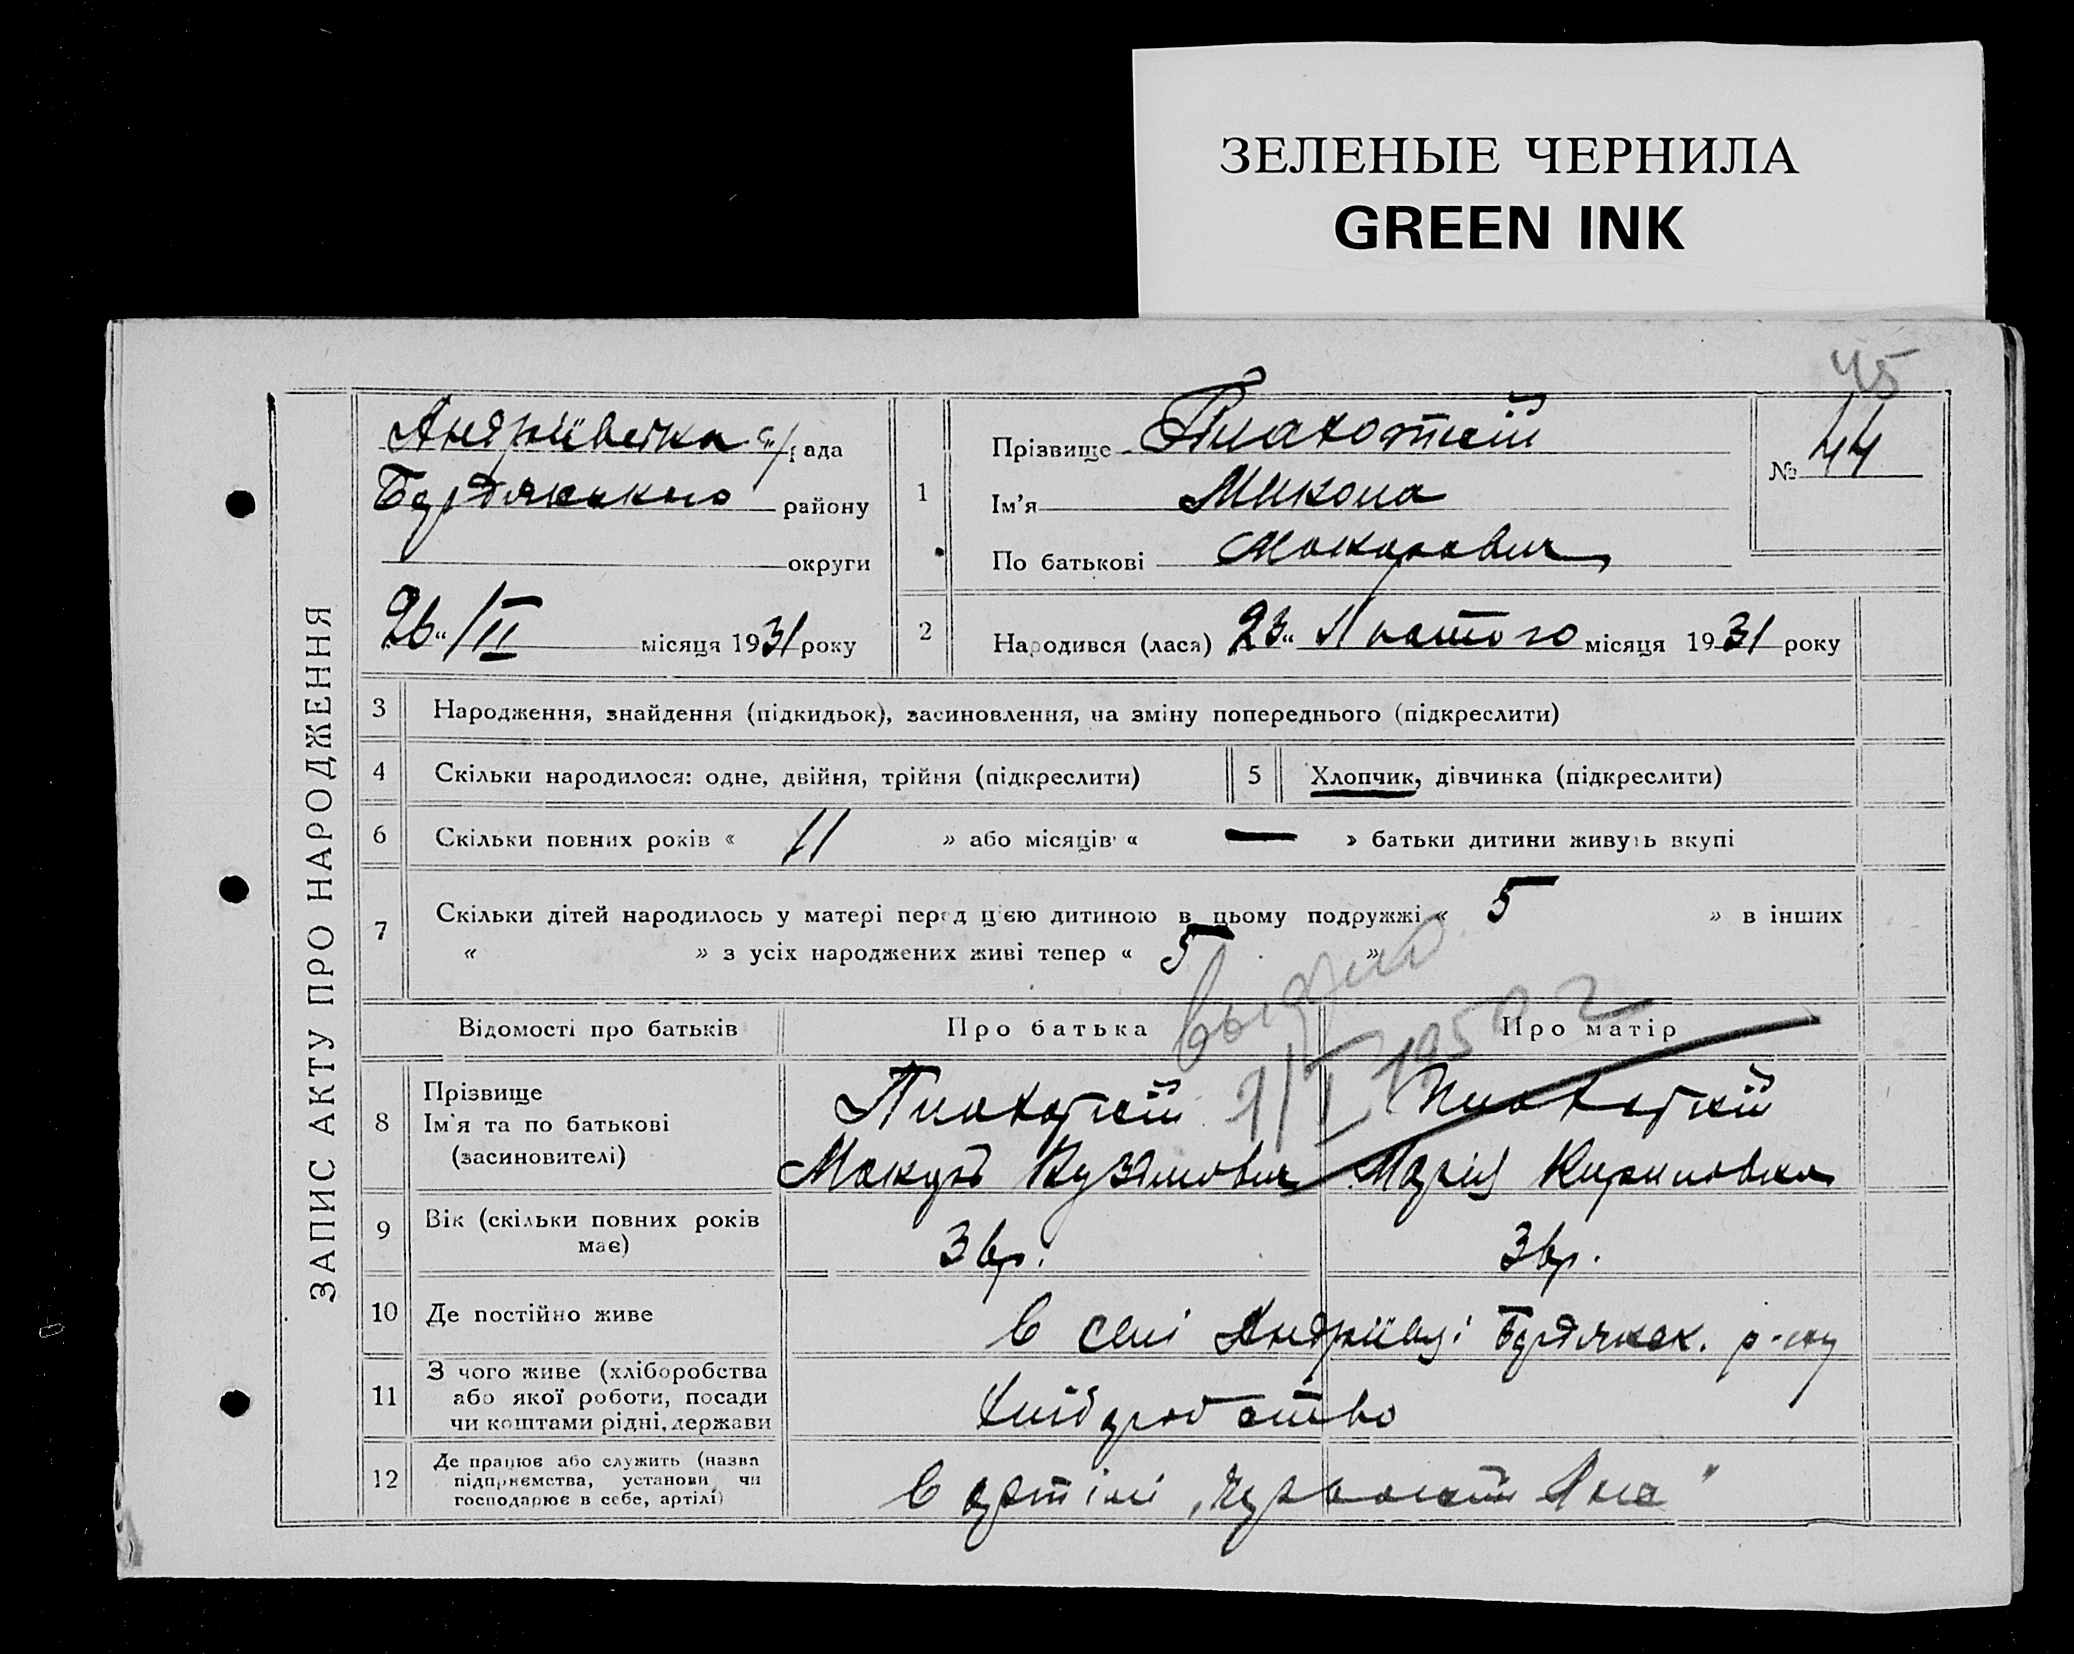 ЗЕЛЕНЫЕ ЧЕРНИЛА
GREEN INK
45
ЗАПИС АКТУ ПРО НАРОДЖЕННЯ
Андріївська с/рада
Бердянського району
округи
26/II місяця 1931 року
1 Прізвище Плахотній
Ім'я Микола
По батькові Макарович
№ 44
2 Народився (лася) 23 Лютого місяця 1931 року
3 Народження, знайдення (підкидьок), засиновлення, на зміну попереднього (підкреслити)
4 Скільки народилося: одне, двійня, трійня (підкреслити)
5 Хлопчик, дівчинка (підкреслити)
6 Скільки повних років « 11 » або місяців « — » батьки дитини живуть вкупі
7 Скільки дітей народилось у матері перед цією дитиною в цьому подружжі « 5 » в інших
« » з усіх народжених живі тепер « 5 »
выдано
9/I 1950 г
Відомості про батьків Про батька Про матір
8 Прізвище
Ім'я та по батькові
(засиновителі)
Плахотній
Макар Кузьмович
Плахотній
Марія Кириловна
9 Вік (скільки повних років
має)
36р. 36р.
10 Де постійно живе в селі Андріївці Бердянськ. р-ну
11 З чого живе (хліборобства
або якої роботи, посади
чи коштами рідні, держави
хліборобство
12 Де працює або служить (назва
підприємства, установи чи
господарює в себе, артілі)
в артілі „Червоний Лан"